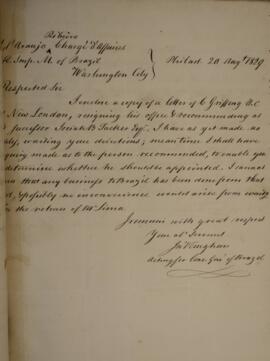 Ribeiro
Araujo, Chargé d'Affaires
H. Imp. M. of Brazil
Washington City
Philad. 20 Augt 1829
Respected Sir
I enclose a copy of a letter of C Griffing V.C
New London, resigning his office & recommending as
I have as yet made no
waiting your directions; meantime I shall have
made as to the person recommended, to enable you
determine whether he should be appointed. I cannot
that any business to Brazil has been done from that
no inconvenience would arise from waiting
the return of Mr Lima.
I remain with great respect
Your ob. Servant
Jn Vaughan